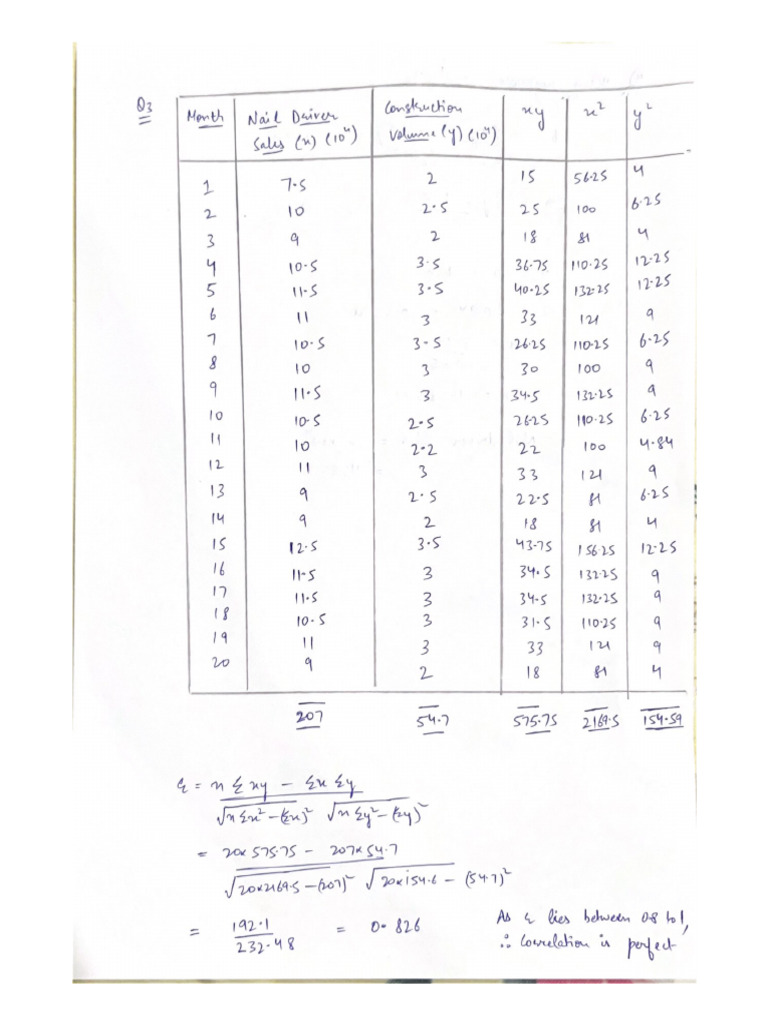 Q3
Month Nail Driver Sales (x) (10⁴) Construction Volume (y) (10⁴) xy x² y²
1 7.5 2 15 56.25 4
2 10 2.5 25 100 6.25
3 9 2 18 81 4
4 10.5 3.5 36.75 110.25 12.25
5 11.5 3.5 40.25 132.25 12.25
6 11 3 33 121 9
7 10.5 3.5 26.25 110.25 6.25
8 10 3 30 100 9
9 11.5 3 34.5 132.25 9
10 10.5 2.5 26.25 110.25 6.25
11 10 2.2 22 100 4.84
12 11 3 33 121 9
13 9 2.5 22.5 81 6.25
14 9 2 18 81 4
15 12.5 3.5 43.75 156.25 12.25
16 11.5 3 34.5 132.25 9
17 11.5 3 34.5 132.25 9
18 10.5 3 31.5 110.25 9
19 11 3 33 121 9
20 9 2 18 81 4
207 54.7 575.75 2169.5 154.59
r = n Σxy − Σx Σy
√nΣx² − (Σx)² √nΣy² − (Σy)²
= 20x575.75 − 207x54.7
√20x2169.5 − (207)² √20x154.6 − (54.7)²
= 192.1 / 232.48 = 0.826
As r lies between 0.8 to 1,
∴ Correlation is perfect